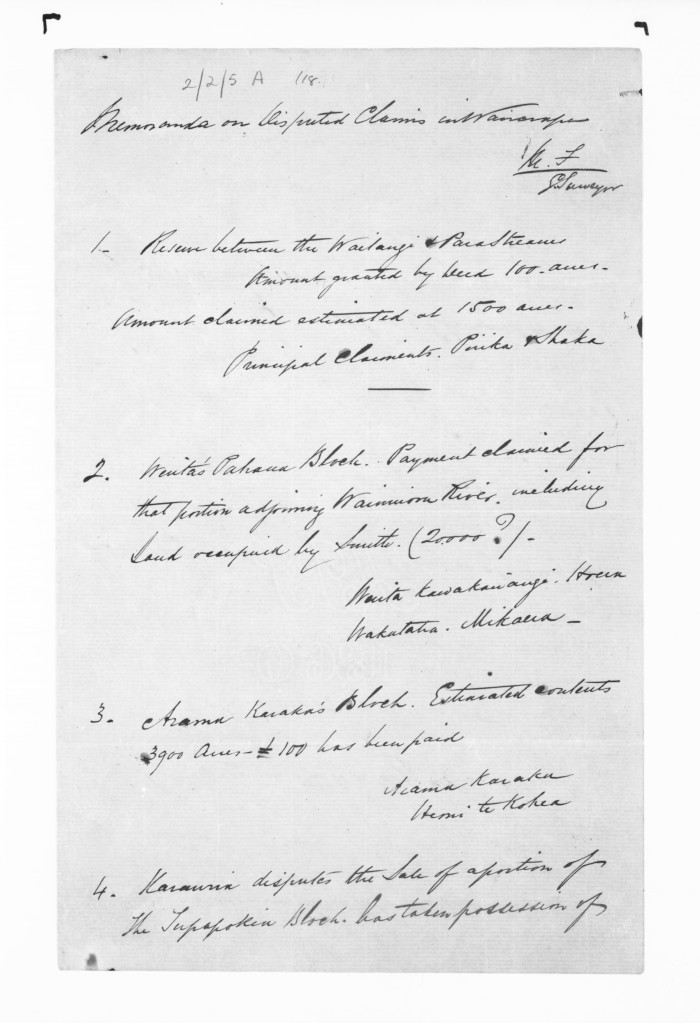 2/2/5 A 118.
Memoranda on Disputed Claims in Wairarapa
Surveyor
1- Reserve between the Waitangi & Para Streams
Amount granted by Deed 100 acres-
Amount claimed estimated at 1500 acres-
Principal Claiments. Piika & Shaka
2. Wiita's Pahaua Block. Payment claimed for
that portion adjoining River, including
Land occupied by Smith. (20.000?)-
Wiita
Mikaera-
3- Arama Karaka's Block. Estimated contents
3900 Acres- £100 has been paid
Arama Karaka
Hemi te Kohea
4. Karauria disputes the Sale of a portion of
The Tupapokia Block. has taken possession of